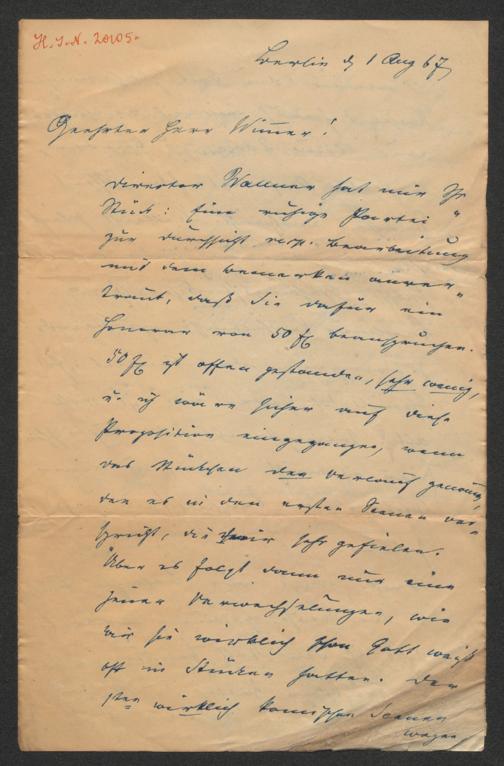 H. I. N. 20105.
Berlin d 1 Aug 67
Geehrter Herr Wimmer!
Director Wallner hat mir Ihr
Stück: "Eine ruhige Partei"
zur Durchsicht resp. Bearbeitung
mit dem Bemerken anver-
traut, daß Sie dafür ein
Honorar von 50 fl beanspruchen.
50 fl ist offen gestanden, sehr wenig,
u. ich wäre sicher auf diese
Proposition eingegangen, wenn
das Stückchen den Verlauf genommen,
den es in den ersten Scenen ver-
spricht, die mir sehr gefielen.
Aber es folgt dann nur eine
jener Verwechselungen, wie
wir sie wirklich schon Gott weiß
oft in Stücken hatten. Der
1sten wirklich komischen Scenen
wegen